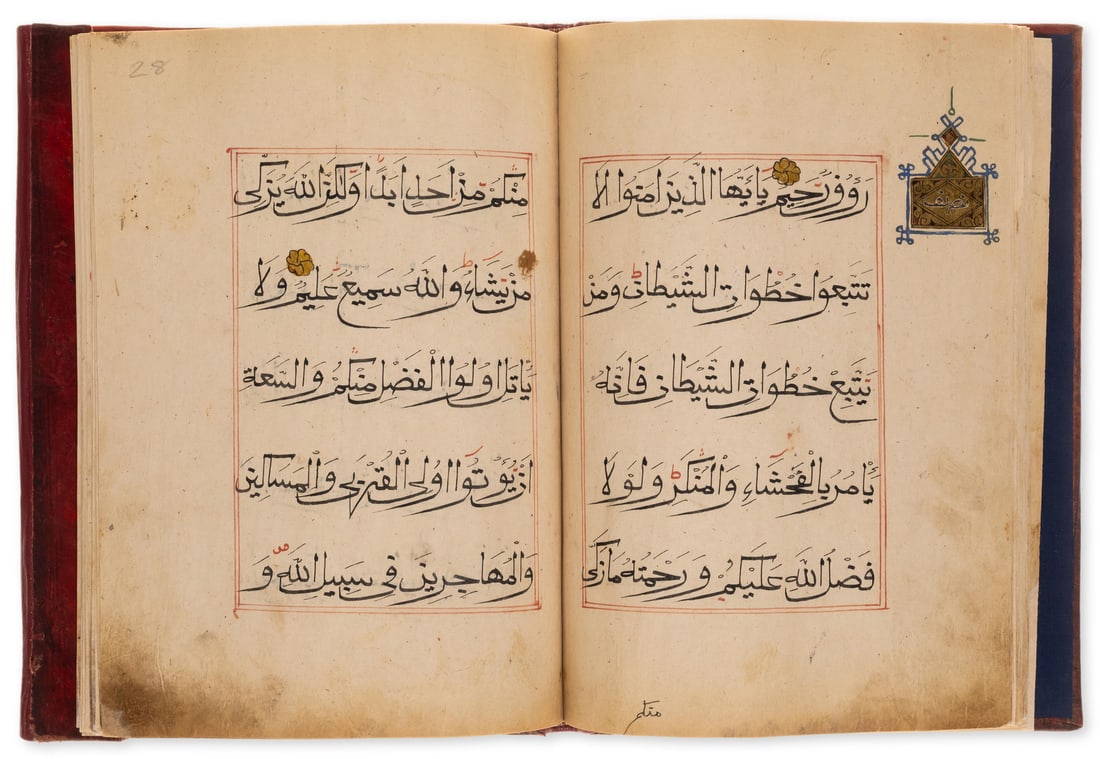 رَؤُفٌ رَّحِيمٌ يَاأَيُّهَا الَّذِينَ امَنُوا لَا
تَتَّبِعُوا خُطُوَاتِ الشَّيْطَانِ وَمَنْ
يَتَّبِعْ خُطُوَاتِ الشَّيْطَانِ فَإِنَّهُ
يَأْمُرُ بِالْفَحْشَاءِ وَالْمُنْكَرِ وَلَوْلَا
فَضْلُ اللَّهِ عَلَيْكُمْ وَرَحْمَتُهُ مَا زَكَى
منكم
28
مِنْكُمْ مِّنْ اَحَدٍ اَبَدًا وَّلَكِنَّ اللَّهَ يُزَكِّى
مَنْ يَّشَاءُ وَاللَّهُ سَمِيعٌ عَلِيمٌ وَلَا
يَأْتَلِ اُولُوا الْفَضْلِ مِنْكُمْ وَالسَّعَةِ
اَنْ يُّؤْتُوا اُولِى الْقُرْبَى وَالْمَسَاكِينَ
وَالْمُهَاجِرِينَ فِى سَبِيلِ اللَّهِ وَ